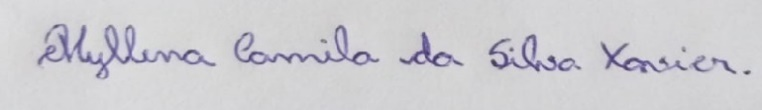 Myllena Camila da Silva Xavier.